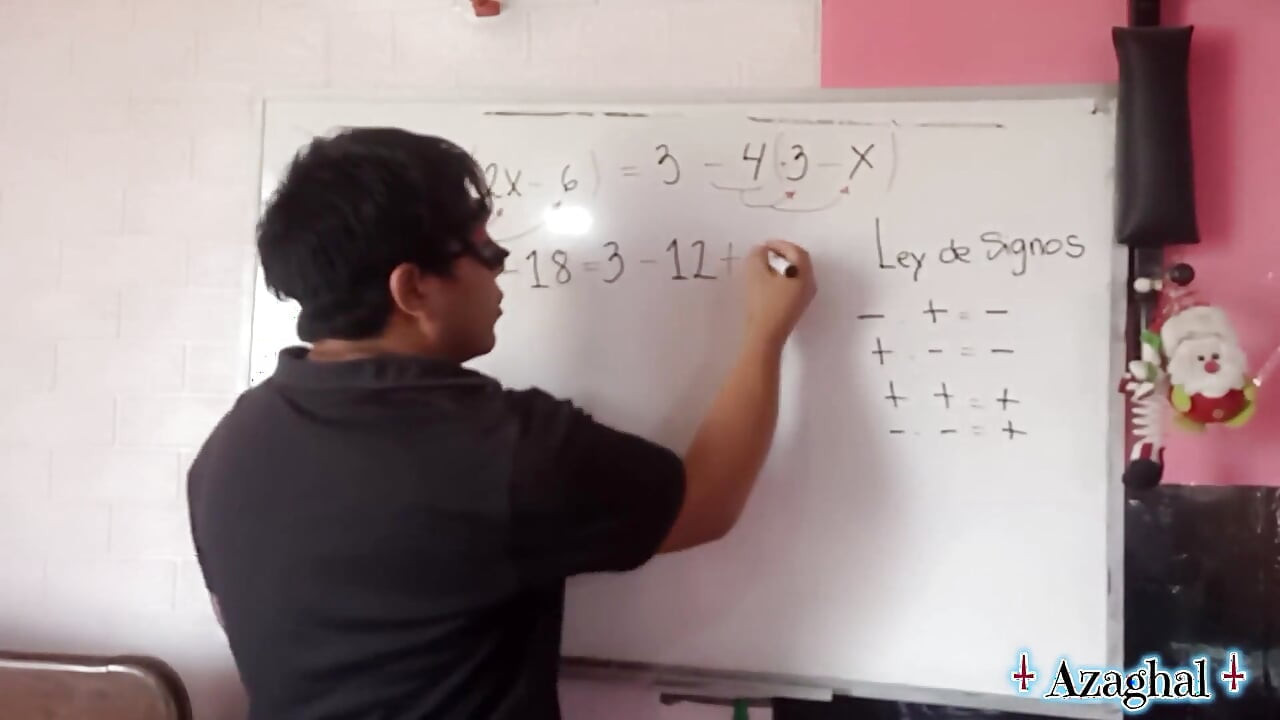 2x - 6) = 3 - 4(3 - x)
-18 = 3 - 12 +
Ley de Signos
- . + = -
+ . - = -
+ . + = +
- . - = +
Azaghal